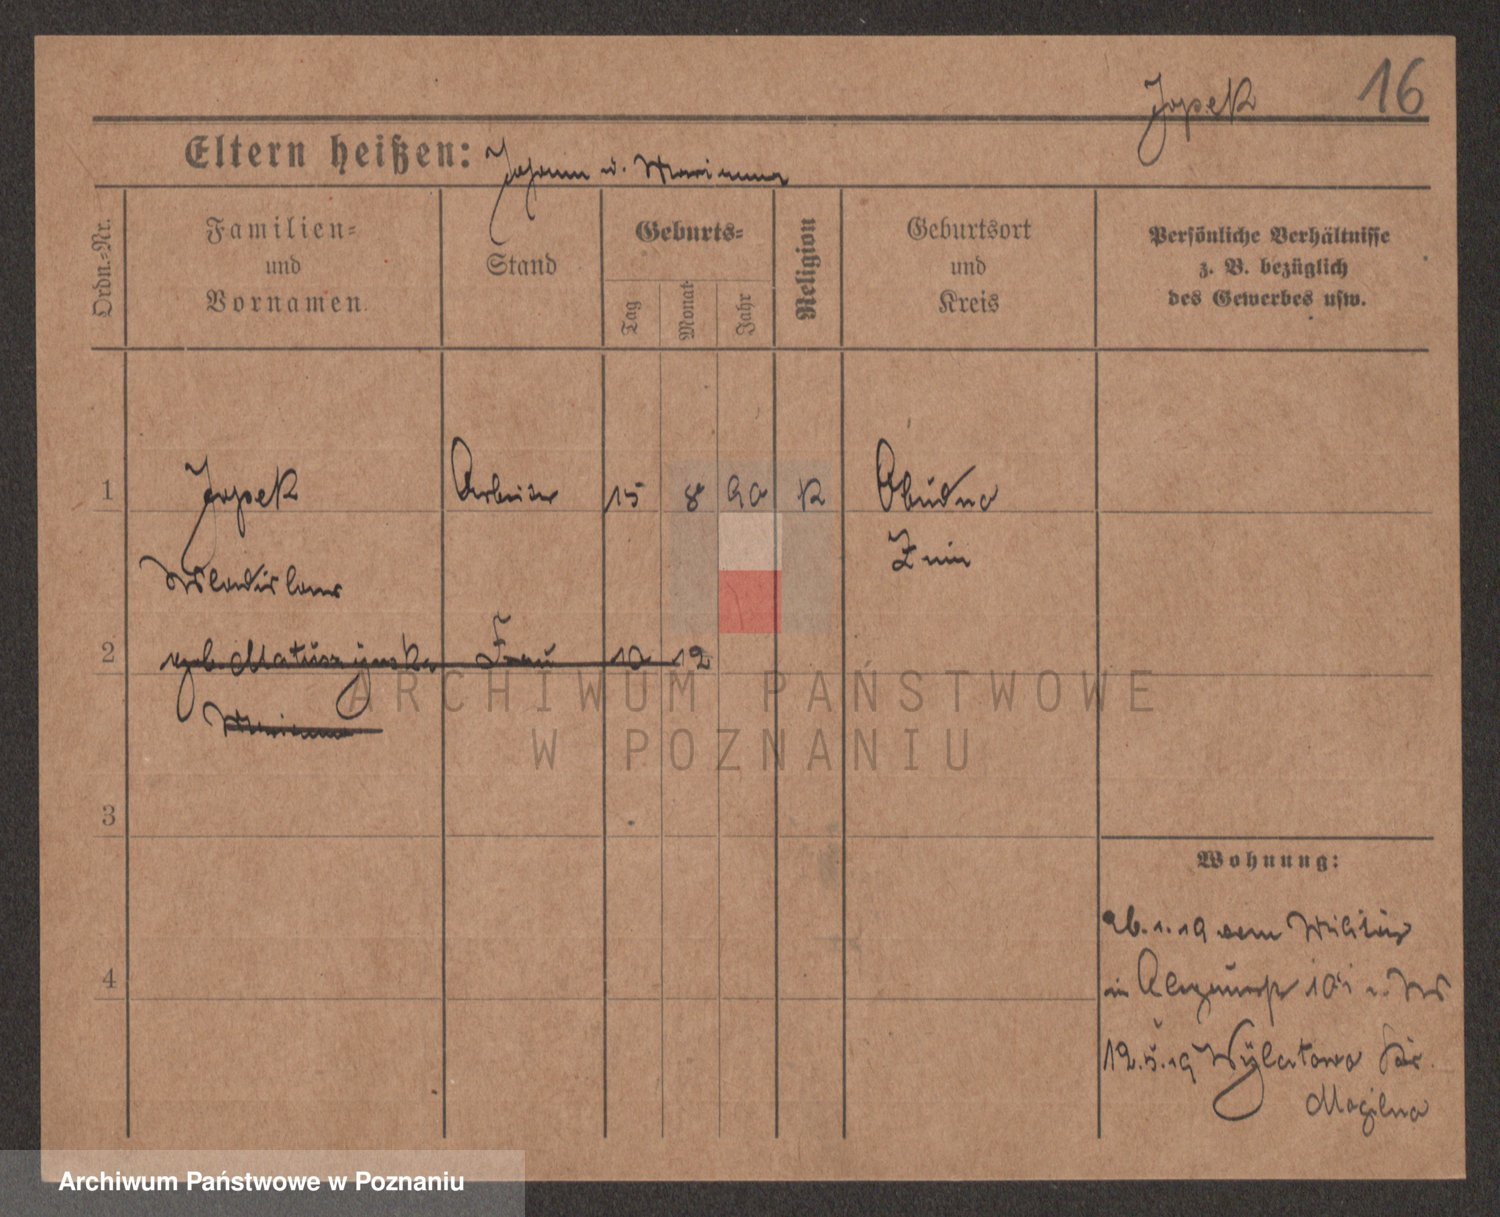 Jopek 16
Eltern heißen: Johann u. Marianna
Ordn.-Nr.
Familien-
und
Vornamen.
Stand
Geburts-
Tag
Monat
Jahr
Religion
Geburtsort
und
Kreis
Persönliche Verhältnisse
z. B. bezüglich
des Gewerbes usw.
1 Jopek Arbeiter 15 8 90 K Obudno
Wladislaus Znin
2 geb. Matuszynska Frau 10 12
Marianna
ARCHIWUM PAŃSTWOWE
W POZNANIU
3
Wohnung:
26.1.19 vom Militär
4
in
12.5.19 Wylatowo Kr.
Mogilno
Archiwum Państwowe w Poznaniu